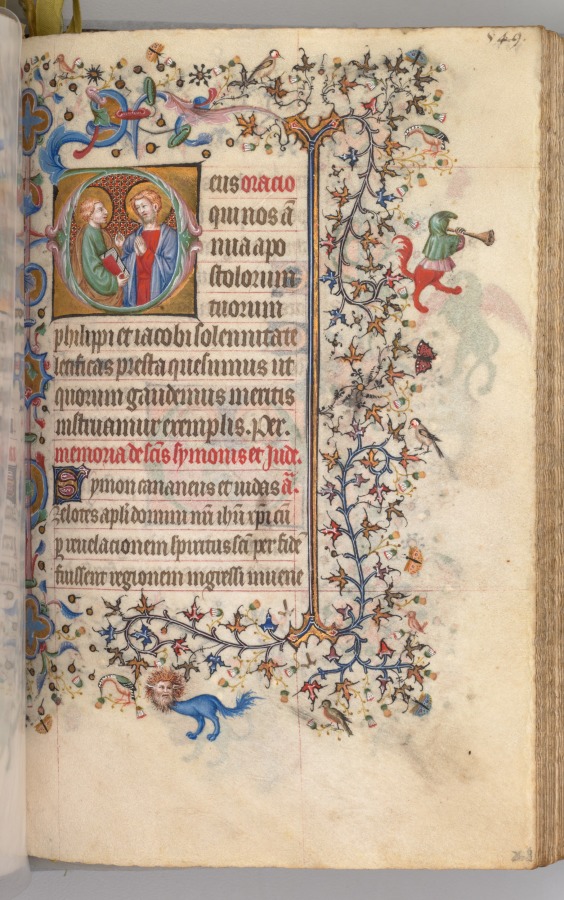 549.
eus oracio
qui nos ā
nua apo
stolorum
tuorum
philippi et iacobi solennitate
letificas presta quesumus ut
quorum gaudemus meritis
instruamur exemplis. Per.
memoria de scīs symonis et Jude.
Symon cananeus et iudas ā.
zelotes apli domini nri ihu xpi cū
p reuelacionem spiritus sci per fidē
fuissent regionem ingressi inuene